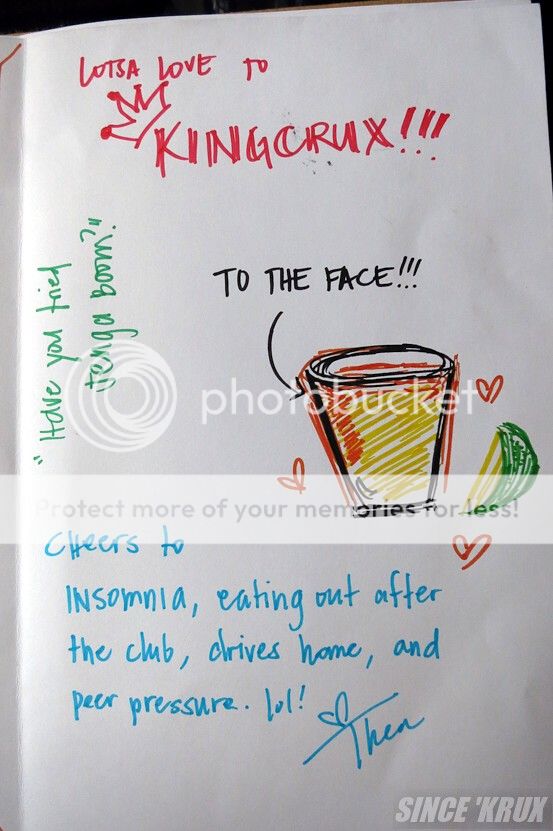 LOTSA LOVE TO
KINGCRUX!!!
"Have you tried
jenga boom?"
TO THE FACE!!!
photobucket
Protect more of your memories for less!
CHEERS to
INSOMNIA, eating out after
the club, drives home, and
peer pressure. lol!
Thea
SINCE 'KRUX